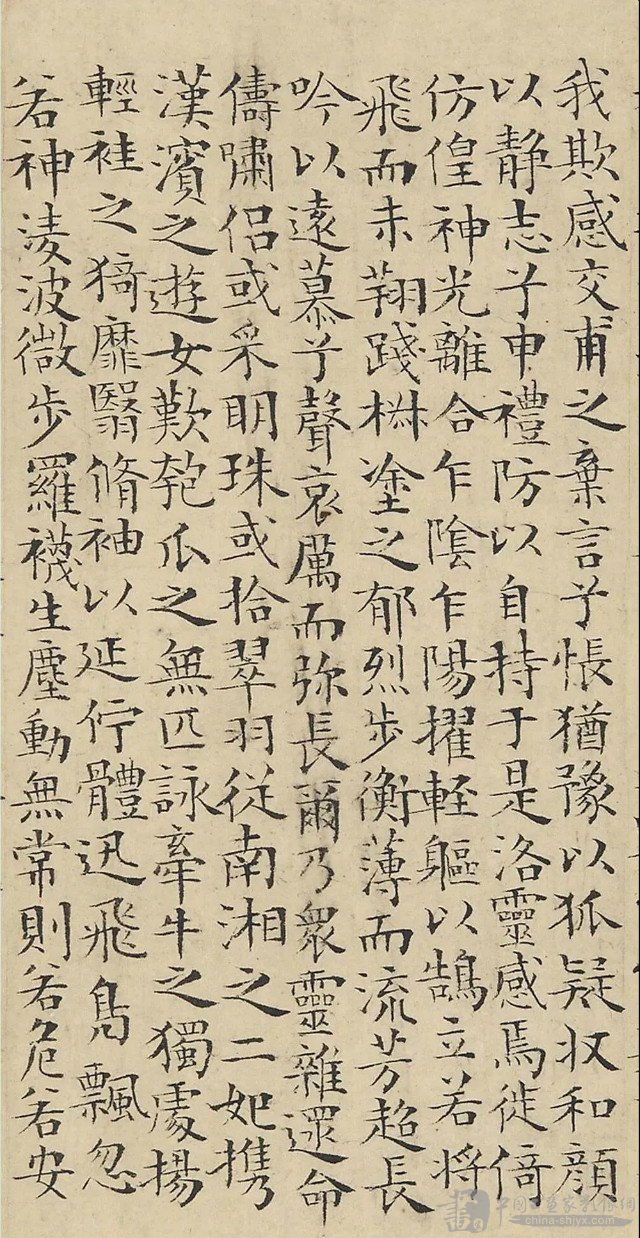 我欺感交甫之棄言兮悵猶豫以狐疑収和顔
以静志兮申禮防以自持于是洛靈感焉徙倚
仿偟神光離合乍陰乍陽擢軽軀以鵠立若将
飛而未翔踐椒塗之郁烈步衡薄而流芳超長
吟以遠慕兮聲哀厲而弥長爾乃衆靈雜遝命
儔嘯侶或采明珠或拾翠羽従南湘之二妃携
漢濱之遊女歎匏爪之無匹詠牽牛之獨處揚
輕袿之猗靡翳脩袖以延佇體迅飛鳧飄忽
若神淩波微步羅襪生塵動無常則若危若安
中国书画家影像網
china-shjyx.com